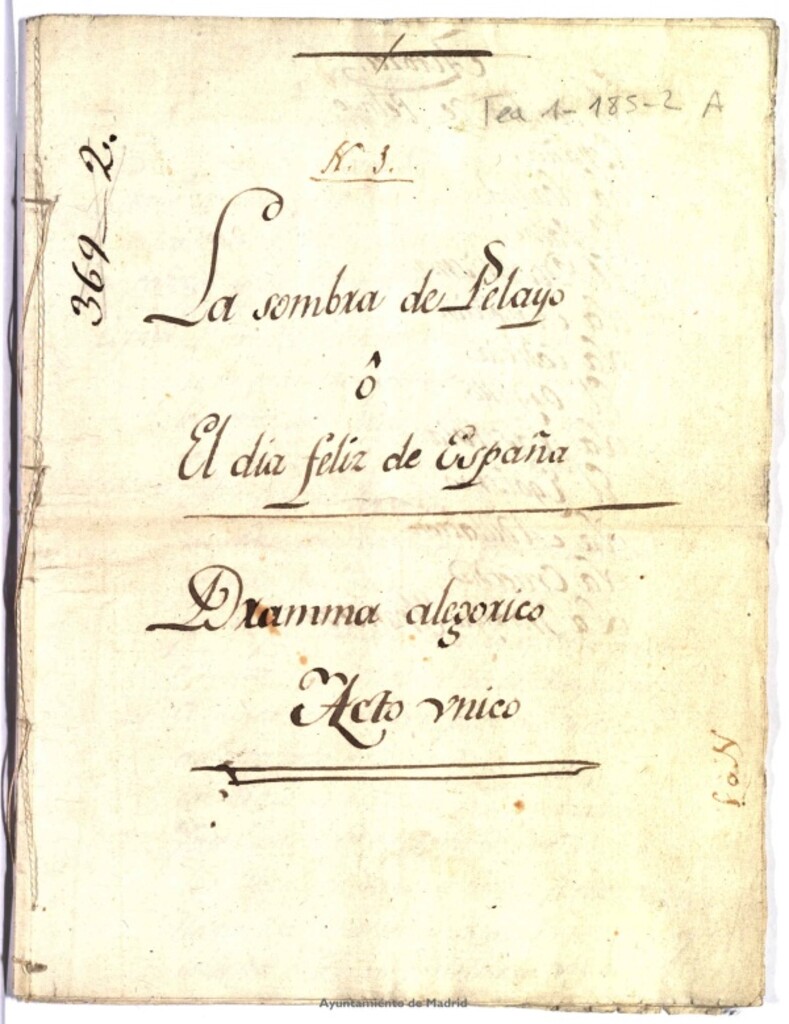 Tea 1-185-2 A
N. 3.
369-2.
La sombra de Pelayo
ô
El dia feliz de España
Dramma alegorico
Acto vnico
Ayuntamiento de Madrid